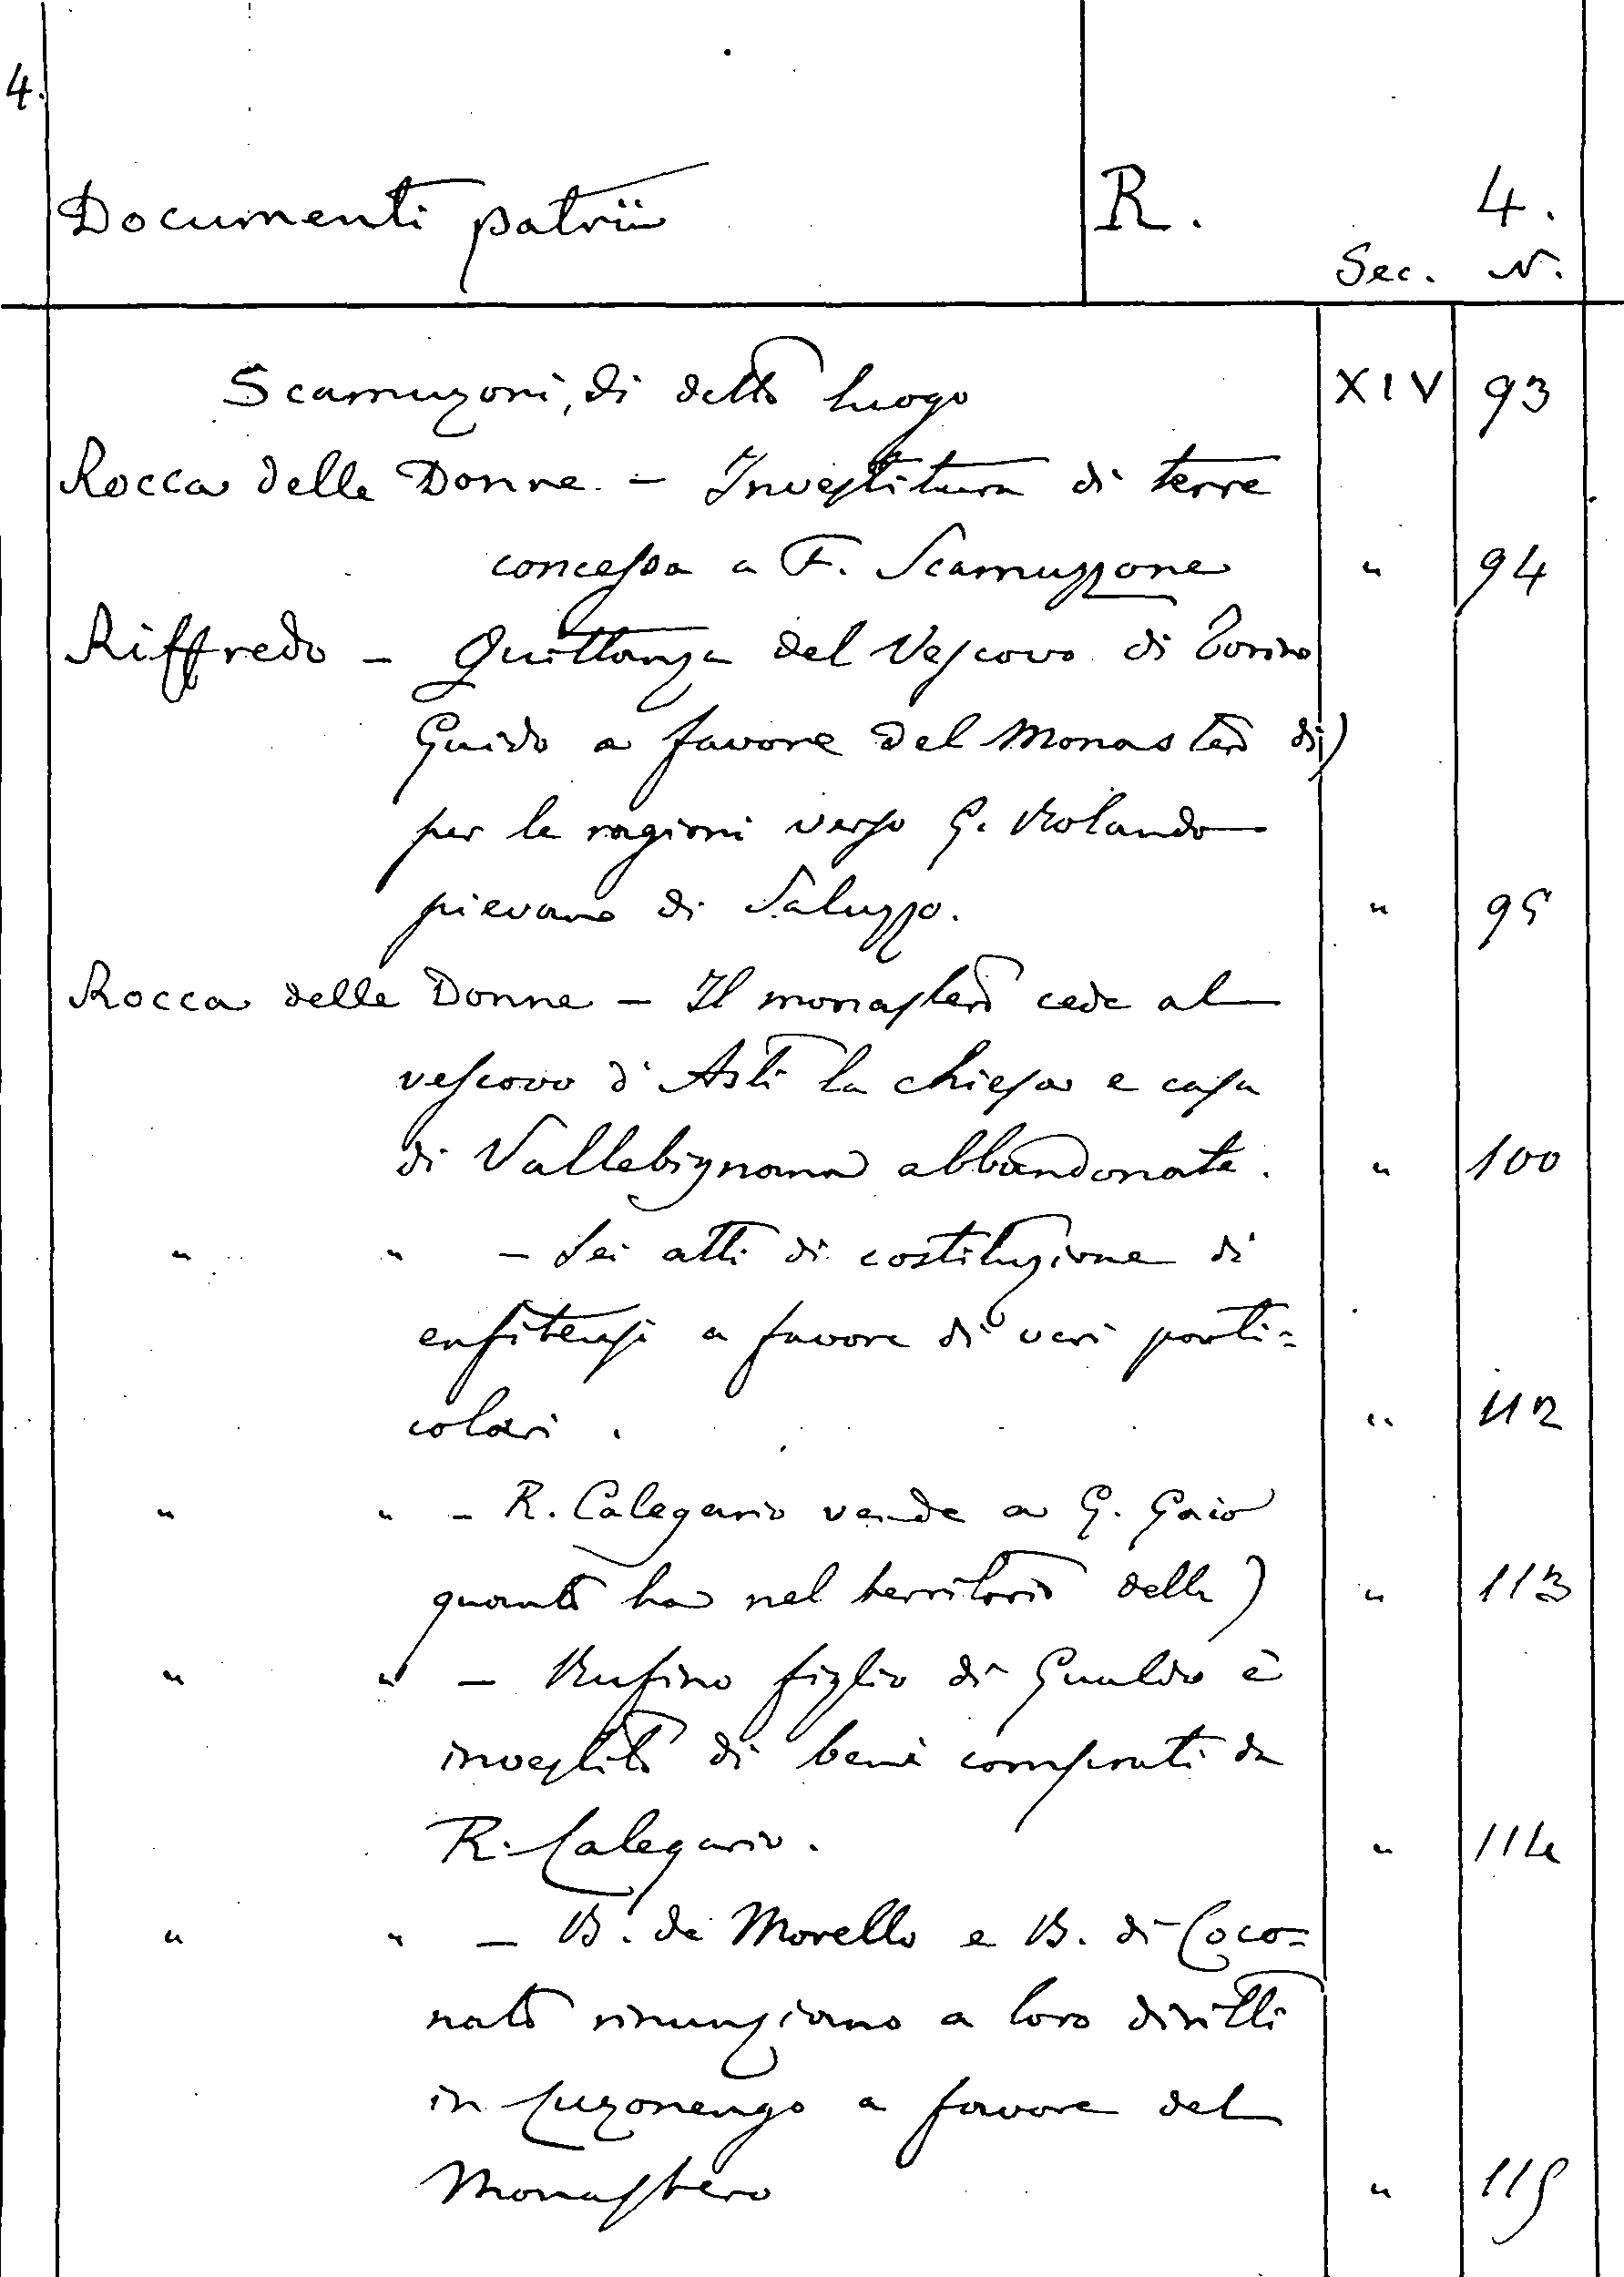 4.
Documenti patrii R. 4.
Sec. N.
Scamuzoni, di detto luogo XIV 93
Rocca delle Donne. - Investitura di terre
concessa a F. Scamuzzone " 94
Riffredo - Quittanza del Vescovo di Torino
Guido a favore del Monastero di)
per le ragioni verso G. Rolando
pievano di Saluzzo. " 95
Rocca delle Donne - Il monastero cede al
vescovo d'Asti la chiesa e casa
di Vallebignana abbandonate. " 100
" " - Sei atti di costituzione di
enfiteusi a favore di vari parti=
colari. " 112
" " - R. Calegario vende a G. Gaio
quanto ha nel territorio della) " 113
" " - Rufino figlio di Gualdo è
investito di beni comprati da
R. Calegario. " 114
" " - B. de Morello e B. di Coco=
nato rinunziano a loro diritti
in Cuzonengo a favore del
Monastero " 115